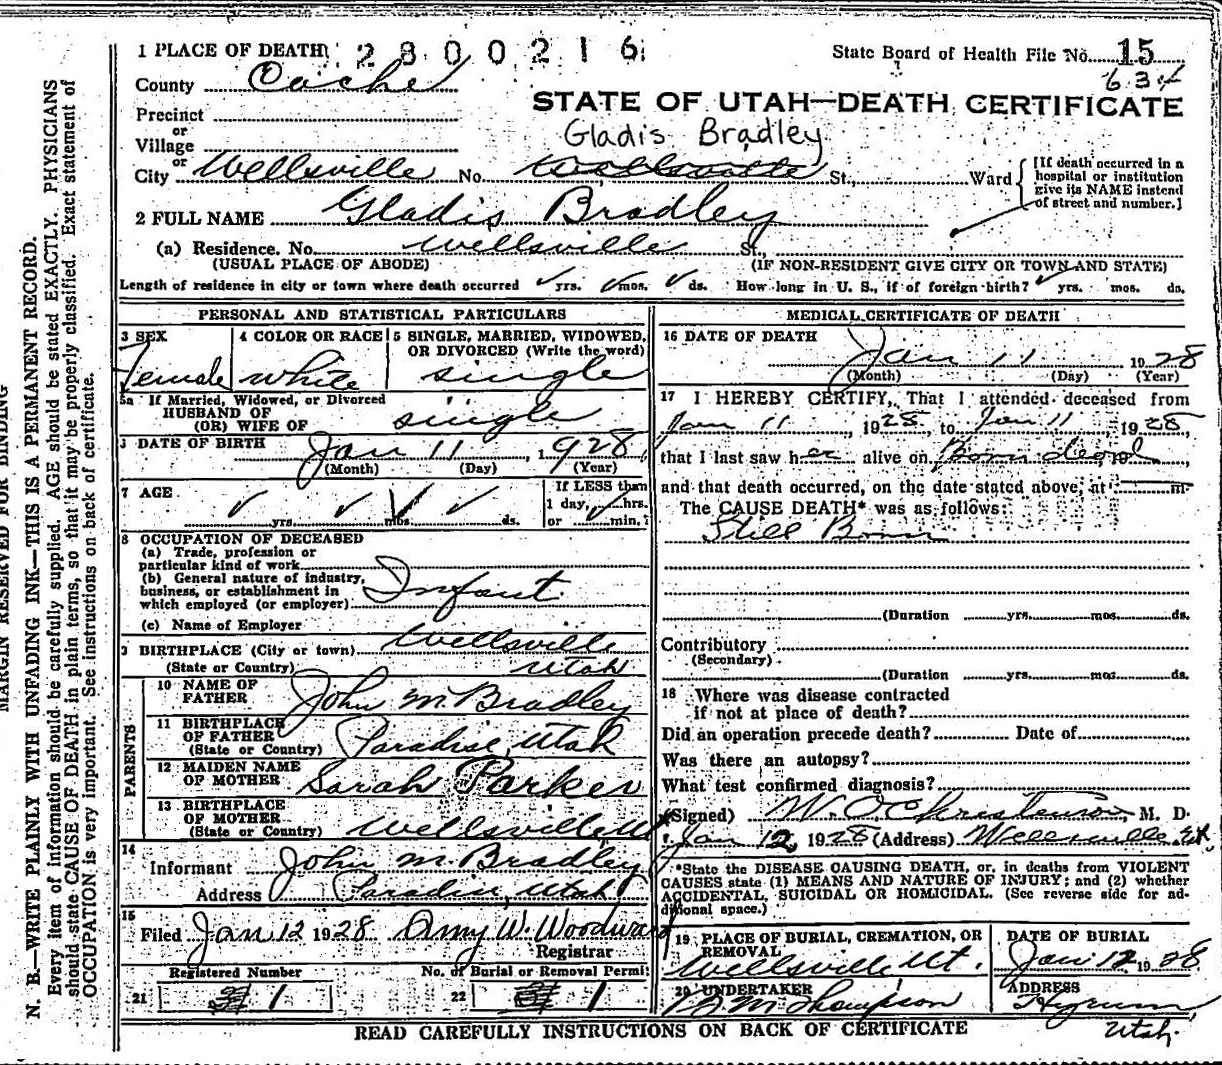 1 PLACE OF DEATH 2800216 State Board of Health File No. 15
County Cache 634
STATE OF UTAH—DEATH CERTIFICATE
Precinct
or
Village
or
Gladis Bradley
City Wellsville No. Wellsville St., Ward
[If death occurred in a
hospital or institution
give its NAME instead
of street and number.]
2 FULL NAME Gladis Bradley
(a) Residence. No. Wellsville St.,
(USUAL PLACE OF ABODE) (IF NON-RESIDENT GIVE CITY OR TOWN AND STATE)
Length of residence in city or town where death occurred yrs. mos. ds. How long in U. S., if of foreign birth? yrs. mos. ds.
PERSONAL AND STATISTICAL PARTICULARS
3 SEX
Female
4 COLOR OR RACE
white
5 SINGLE, MARRIED, WIDOWED,
OR DIVORCED (Write the word)
single
5a If Married, Widowed, or Divorced
HUSBAND OF
(OR) WIFE OF single
DATE OF BIRTH Jan 11, 1928
(Month) (Day) (Year)
7 AGE
yrs. mos. ds.
If LESS than
1 day, hrs.
or min.
8 OCCUPATION OF DECEASED
(a) Trade, profession or
particular kind of work
(b) General nature of industry,
business, or establishment in
which employed (or employer) Infant
(c) Name of Employer
9 BIRTHPLACE (City or town) Wellsville
(State or Country) Utah
PARENTS
10 NAME OF
FATHER John M. Bradley
11 BIRTHPLACE
OF FATHER
(State or Country) Paradise, Utah
12 MAIDEN NAME
OF MOTHER Sarah Parker
13 BIRTHPLACE
OF MOTHER
(State or Country) Wellsville, U
14
Informant John M. Bradley
Address Paradise, Utah
15
Filed Jan 12 1928 Amy W. Woodward
Registrar
Registered Number No. of Burial or Removal Permit
21 1 22 1
MEDICAL CERTIFICATE OF DEATH
16 DATE OF DEATH
Jan 11 1928
(Month) (Day) (Year)
17 I HEREBY CERTIFY, That I attended deceased from
Jan 11, 1928, to Jan 11, 1928,
that I last saw her alive on Born dead, 19
and that death occurred, on the date stated above, at m.
The CAUSE DEATH* was as follows:
Still Born
(Duration yrs. mos. ds.
Contributory
(Secondary)
(Duration yrs. mos. ds.
18 Where was disease contracted
if not at place of death?
Did an operation precede death? Date of
Was there an autopsy?
What test confirmed diagnosis?
(Signed) W. O. Christenson M. D.
Jan 12, 1928 (Address) Wellsville, Ut.
*State the DISEASE CAUSING DEATH, or, in deaths from VIOLENT
CAUSES state (1) MEANS AND NATURE OF INJURY; and (2) whether
ACCIDENTAL, SUICIDAL OR HOMICIDAL. (See reverse side for ad-
ditional space.)
19 PLACE OF BURIAL, CREMATION, OR
REMOVAL
Wellsville Ut.
DATE OF BURIAL
Jan 12 1928
20 UNDERTAKER
Thompson
ADDRESS
Hyrum,
Utah.
READ CAREFULLY INSTRUCTIONS ON BACK OF CERTIFICATE
MARGIN RESERVED FOR BINDING
N. B.—WRITE PLAINLY WITH UNFADING INK—THIS IS A PERMANENT RECORD.
Every item of information should be carefully supplied. AGE should be stated EXACTLY. PHYSICIANS
should state CAUSE OF DEATH in plain terms, so that it may be properly classified. Exact statement of
OCCUPATION is very important. See instructions on back of certificate.